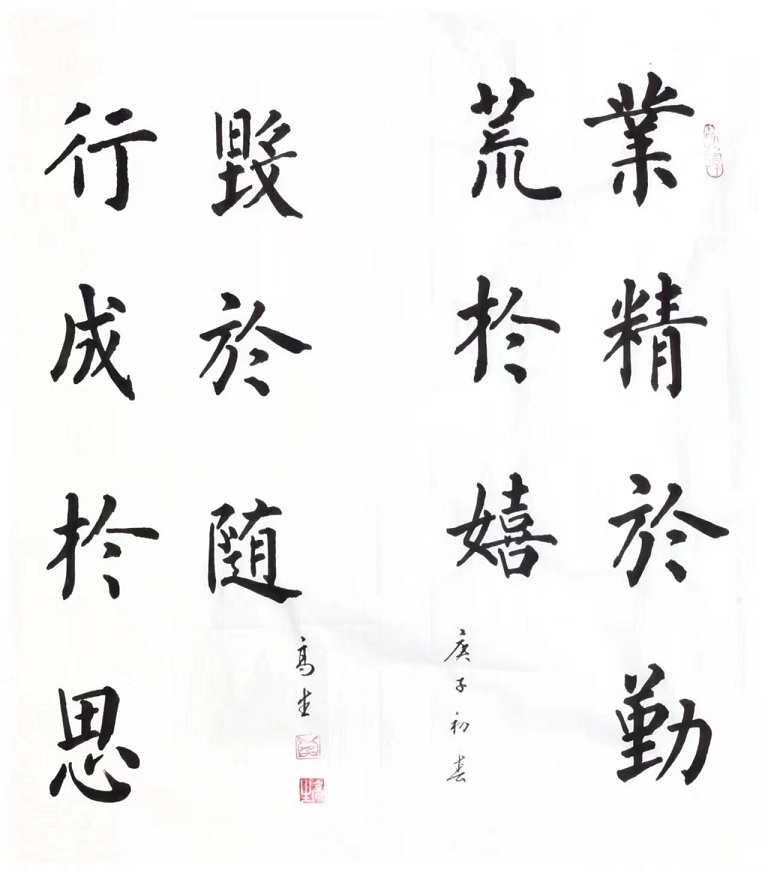 業精於勤
荒於嬉
庚子初春
行成於思
毁於随
高生